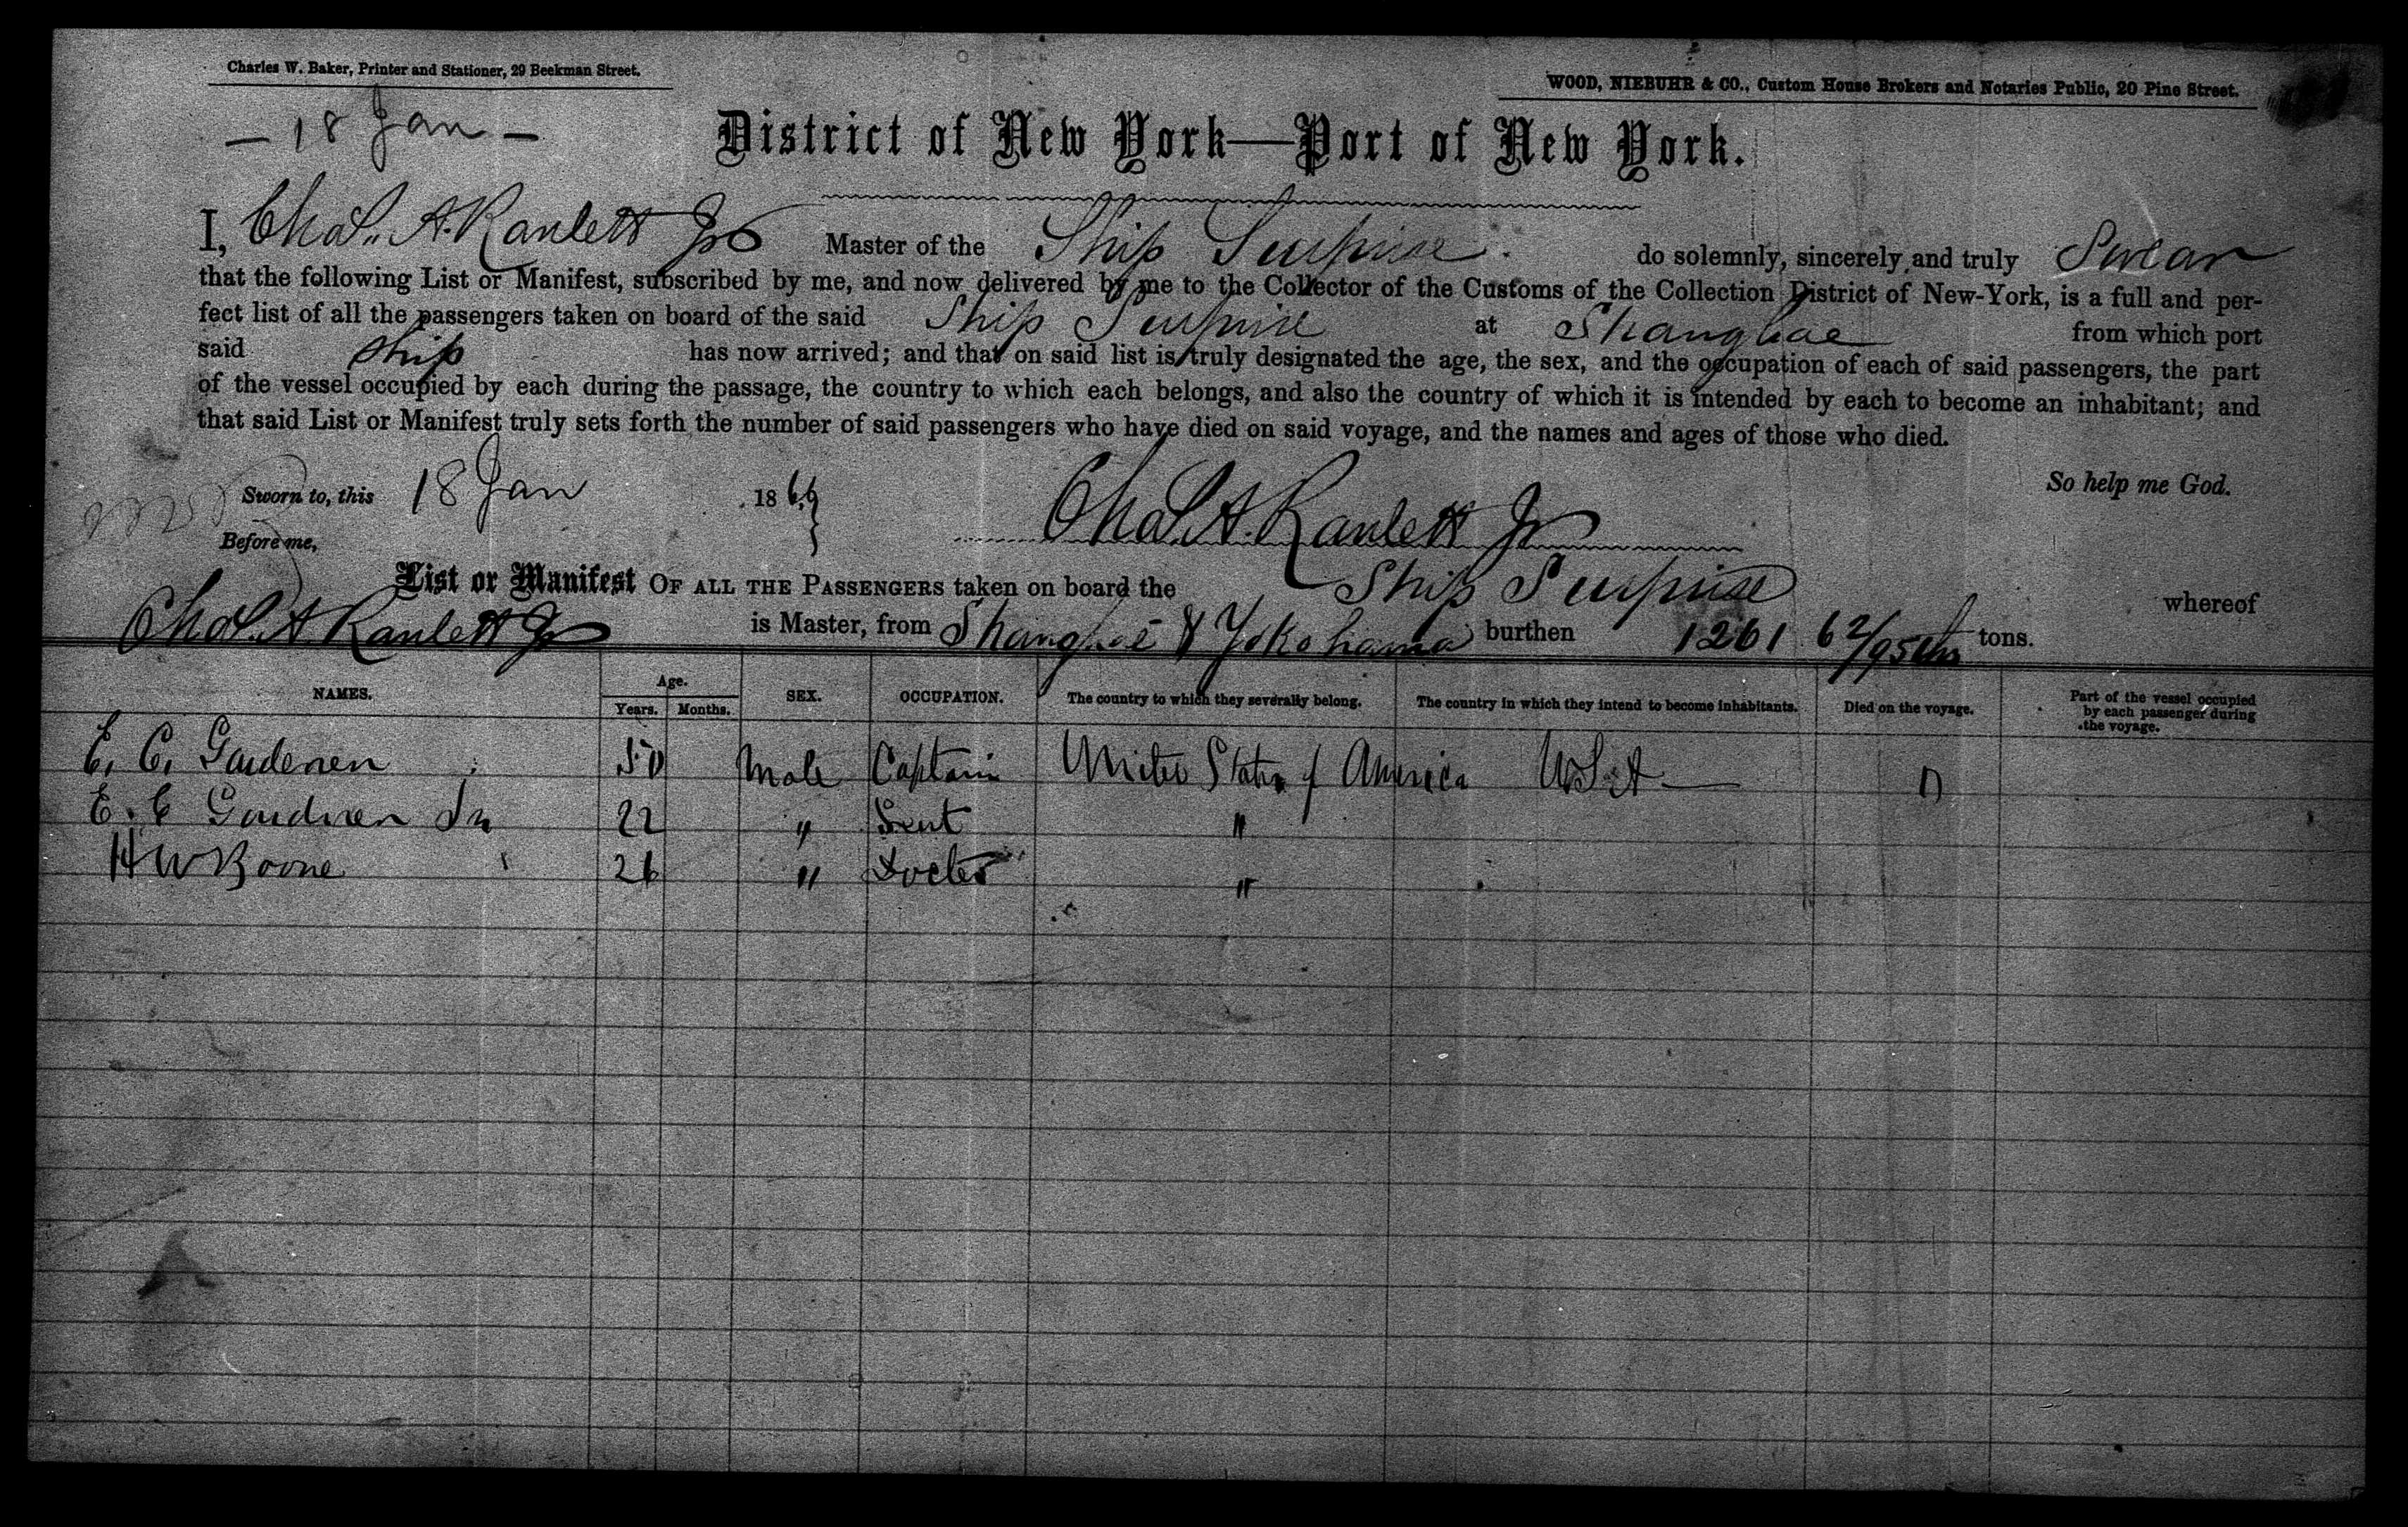 Charles W. Baker, Printer and Stationer, 29 Beekman Street.
WOOD, NIEBUHR & CO., Custom House Brokers and Notaries Public, 20 Pine Street.
— 18 Jan —
District of New York—Port of New York.
I, Chas. A. Ranlett Jr Master of the Ship Surprise. do solemnly, sincerely and truly Swear
that the following List or Manifest, subscribed by me, and now delivered by me to the Collector of the Customs of the Collection District of New-York, is a full and per-
fect list of all the passengers taken on board of the said Ship Surprise at Shanghae from which port
said ship has now arrived; and that on said list is truly designated the age, the sex, and the occupation of each of said passengers, the part
of the vessel occupied by each during the passage, the country to which each belongs, and also the country of which it is intended by each to become an inhabitant; and
that said List or Manifest truly sets forth the number of said passengers who have died on said voyage, and the names and ages of those who died.
So help me God.
Sworn to, this 18 Jan 1869
Chas. A. Ranlett Jr
Before me,
List or Manifest OF ALL THE PASSENGERS taken on board the Ship Surprise whereof
Chas. A Ranlett Jr is Master, from Shanghae & Yokohama burthen 1261 62/95ths tons.
NAMES. Age. Years. Months. SEX. OCCUPATION. The country to which they severally belong. The country in which they intend to become inhabitants. Died on the voyage. Part of the vessel occupied by each passenger during the voyage.
E. C. Gardenen 50 Male Captain United States of America USA — 0
E. C Gardnen Jn 22 " "
H W Boone 26 " Doctor "